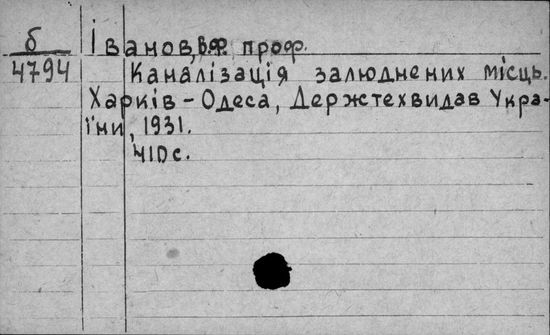 б
4794
Іванов, В.Ф. проф.
Каналізація залюднених місць.
Харків – Одеса, Держтехвидав Укра-
їни, 1931.
410 с.